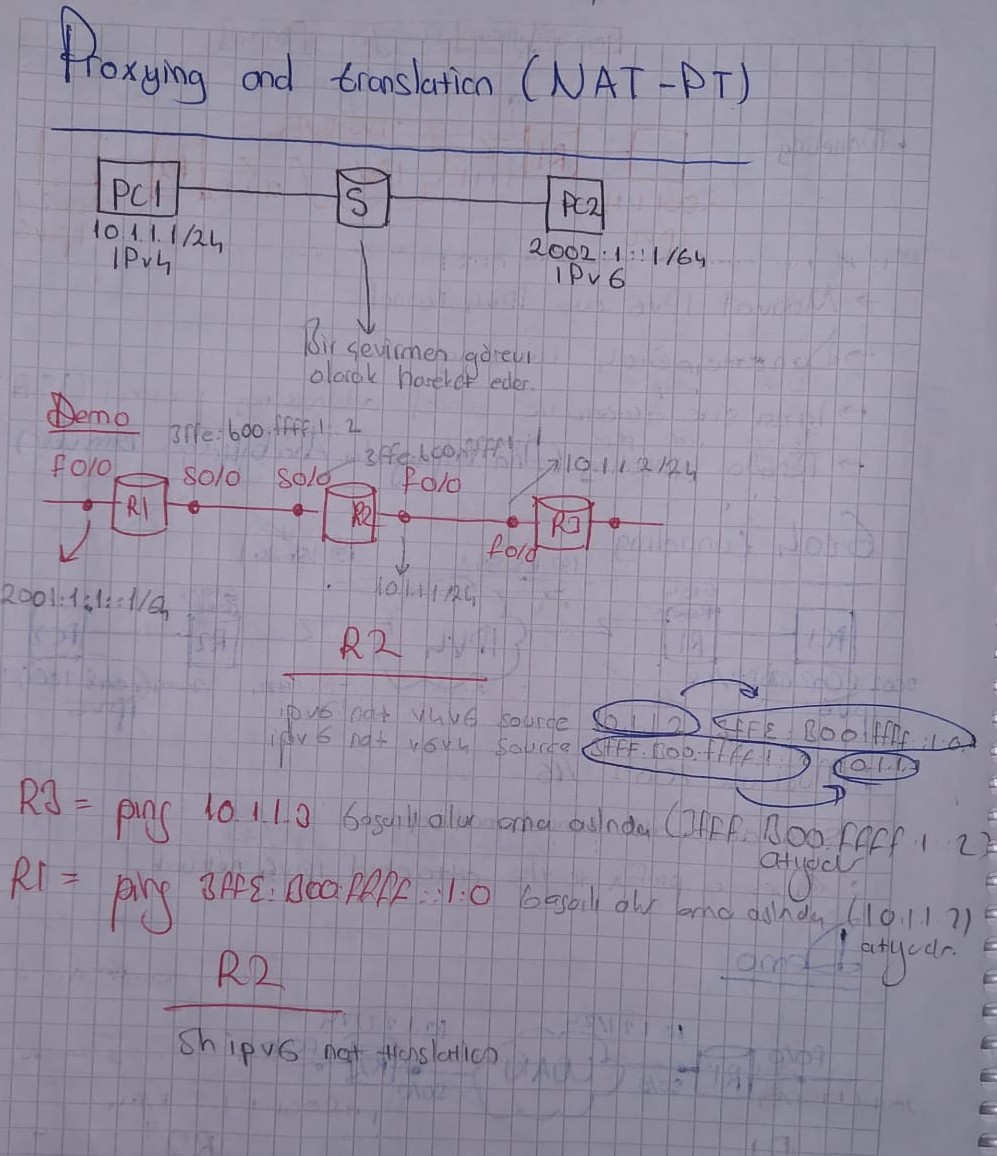 Proxying and translation (NAT-PT)
PC1
S
PC2
10.1.1.1/24
IPv4
2002:1::1/64
IPv6
Bir çevirmen görevi
olarak hareket eder.
Demo
3ffe:b00:ffff:1::2
f0/0
S0/0
S0/0
f0/0
10.1.1.2/24
R1
R2
R3
f0/0
2001:1:1::1/64
10.1.1.1/24
R2
ipv6 nat v4v6 source 10.1.1.2 3FFE:B00:ffff::1:0
ipv6 nat v6v4 source 3FFE:B00:ffff:1::2 10.1.1.3
R3 = ping 10.1.1.3 başarılı olur ama aslında (3FFE:B00:FFFF:1::2)
atıyordur
R1 = ping 3FFE:B00:FFFF::1:0 başarılı olur ama aslında (10.1.1.2)
atıyordur.
R2
Sh ipv6 nat translation